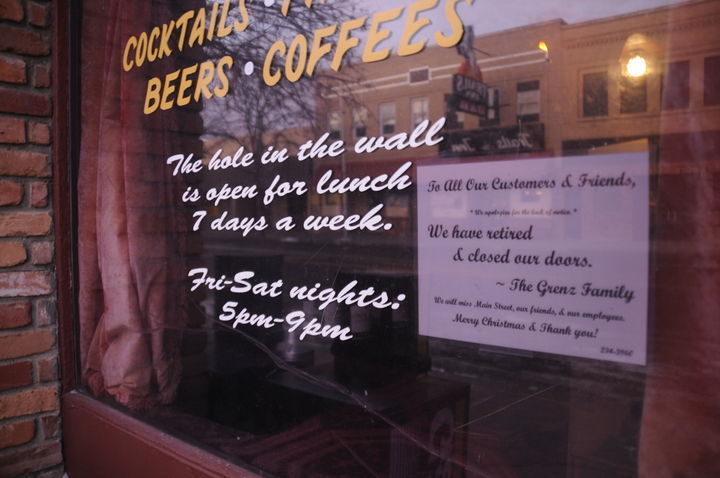 COCKTAILS •
BEERS • COFFEES
The hole in the wall
is open for lunch
7 days a week.
Fri-Sat nights:
5pm-9pm
To All Our Customers & Friends,
* We apologize for the lack of notice. *
We have retired
& closed our doors.
~ The Grenz Family
We will miss Main Street, our friends, & our employees.
Merry Christmas & Thank you!